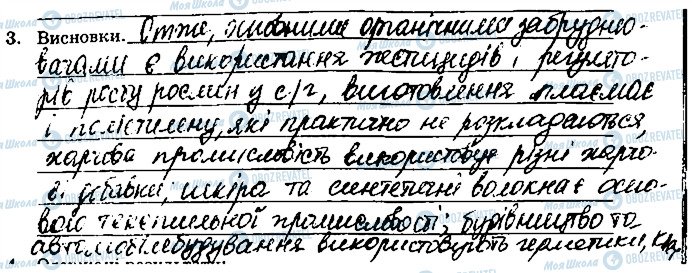 3. Висновки. Отже, основними органічними забрудню-
вачами є використання пестицидів, регулято-
рів росту рослин у с/г, виготовлення пластмас
і поліетилену, які практично не розкладаються,
харчова промисловість використовує різні харчо-
ві добавки, шкіра та синтетичні волокна є осно-
вою текстильної промисловості; будівництво та
автомобілебудування використовують герметики,